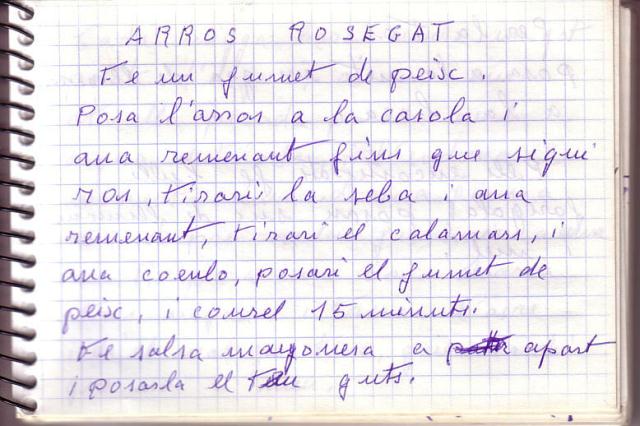 ARROS ROSEGAT
Fe un fumet de peisc.
Posa l'arros a la casola i
ana remenant fins que sigui
ros, tirari la seba i ana
remenant, tirari el calamars, i
ana coenlo, posari el fumet de
peisc, i courel 15 minuts.
Fe salsa mayonesa a apart
i posarla el teu guts.